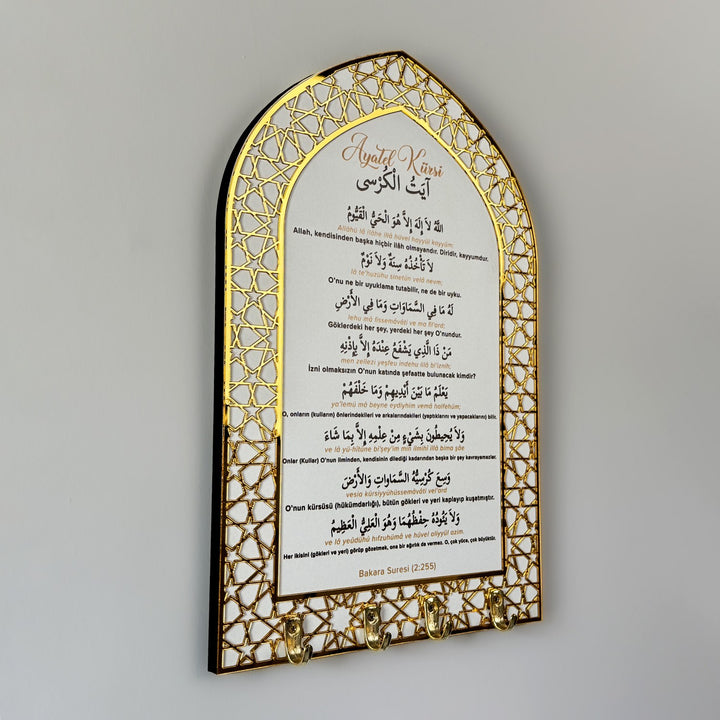 Ayatel Kürsi
آيَتُ الْكُرْسى
اللَّهُ لاَ إِلَهَ إِلاَّ هُوَ الْحَيُّ الْقَيُّومُ
Allâhü lâ ilâhe illâ hüvel hayyül kayyûm;
Allah, kendisinden başka hiçbir ilâh olmayandır. Diridir, kayyumdur.
لاَ تَأْخُذُهُ سِنَةٌ وَلاَ نَوْمٌ
lâ te'huzühu sinetün velâ nevm;
O'nu ne bir uyuklama tutabilir, ne de bir uyku.
لَهُ مَا فِي السَّمَاوَاتِ وَمَا فِي الأَرْضِ
lehu mâ fissemâvâti ve ma fil'ard;
Göklerdeki her şey, yerdeki her şey O'nundur.
مَنْ ذَا الَّذِي يَشْفَعُ عِنْدَهُ إِلاَّ بِإِذْنِهِ
men zellezi yeşfeu indehu illâ bi'iznih;
İzni olmaksızın O'nun katında şefaatte bulunacak kimdir?
يَعْلَمُ مَا بَيْنَ أَيْدِيهِمْ وَمَا خَلْفَهُمْ
ya'lemü mâ beyne eydiyhim vemâ halfehüm;
O, onların (kulların) önlerindekileri ve arkalarındakileri (yaptıklarını ve yapacaklarını) bilir.
وَلاَ يُحِيطُونَ بِشَيْءٍ مِنْ عِلْمِهِ إِلاَّ بِمَا شَاءَ
ve lâ yü-hîtûne bi'şey'im min ilmihî illâ bima şâe
Onlar (Kullar) O'nun ilminden, kendisinin dilediği kadarından başka bir şey kavrayamazlar.
وَسِعَ كُرْسِيُّهُ السَّمَاوَاتِ وَالأَرْضَ
vesia kürsiyyühüssemâvâti vel'ard
O'nun kürsüsü (hükümdarlığı), bütün gökleri ve yeri kaplayıp kuşatmıştır.
وَلاَ يَئُودُهُ حِفْظُهُمَا وَهُوَ الْعَلِيُّ الْعَظِيمُ
ve lâ yeûdühü hıfzuhümâ ve hüvel aliyyül azim.
Her ikisini (gökleri ve yeri) görüp gözetmek, ona bir ağırlık da vermez. O, çok yüce, çok büyüktür.
Bakara Suresi (2:255)